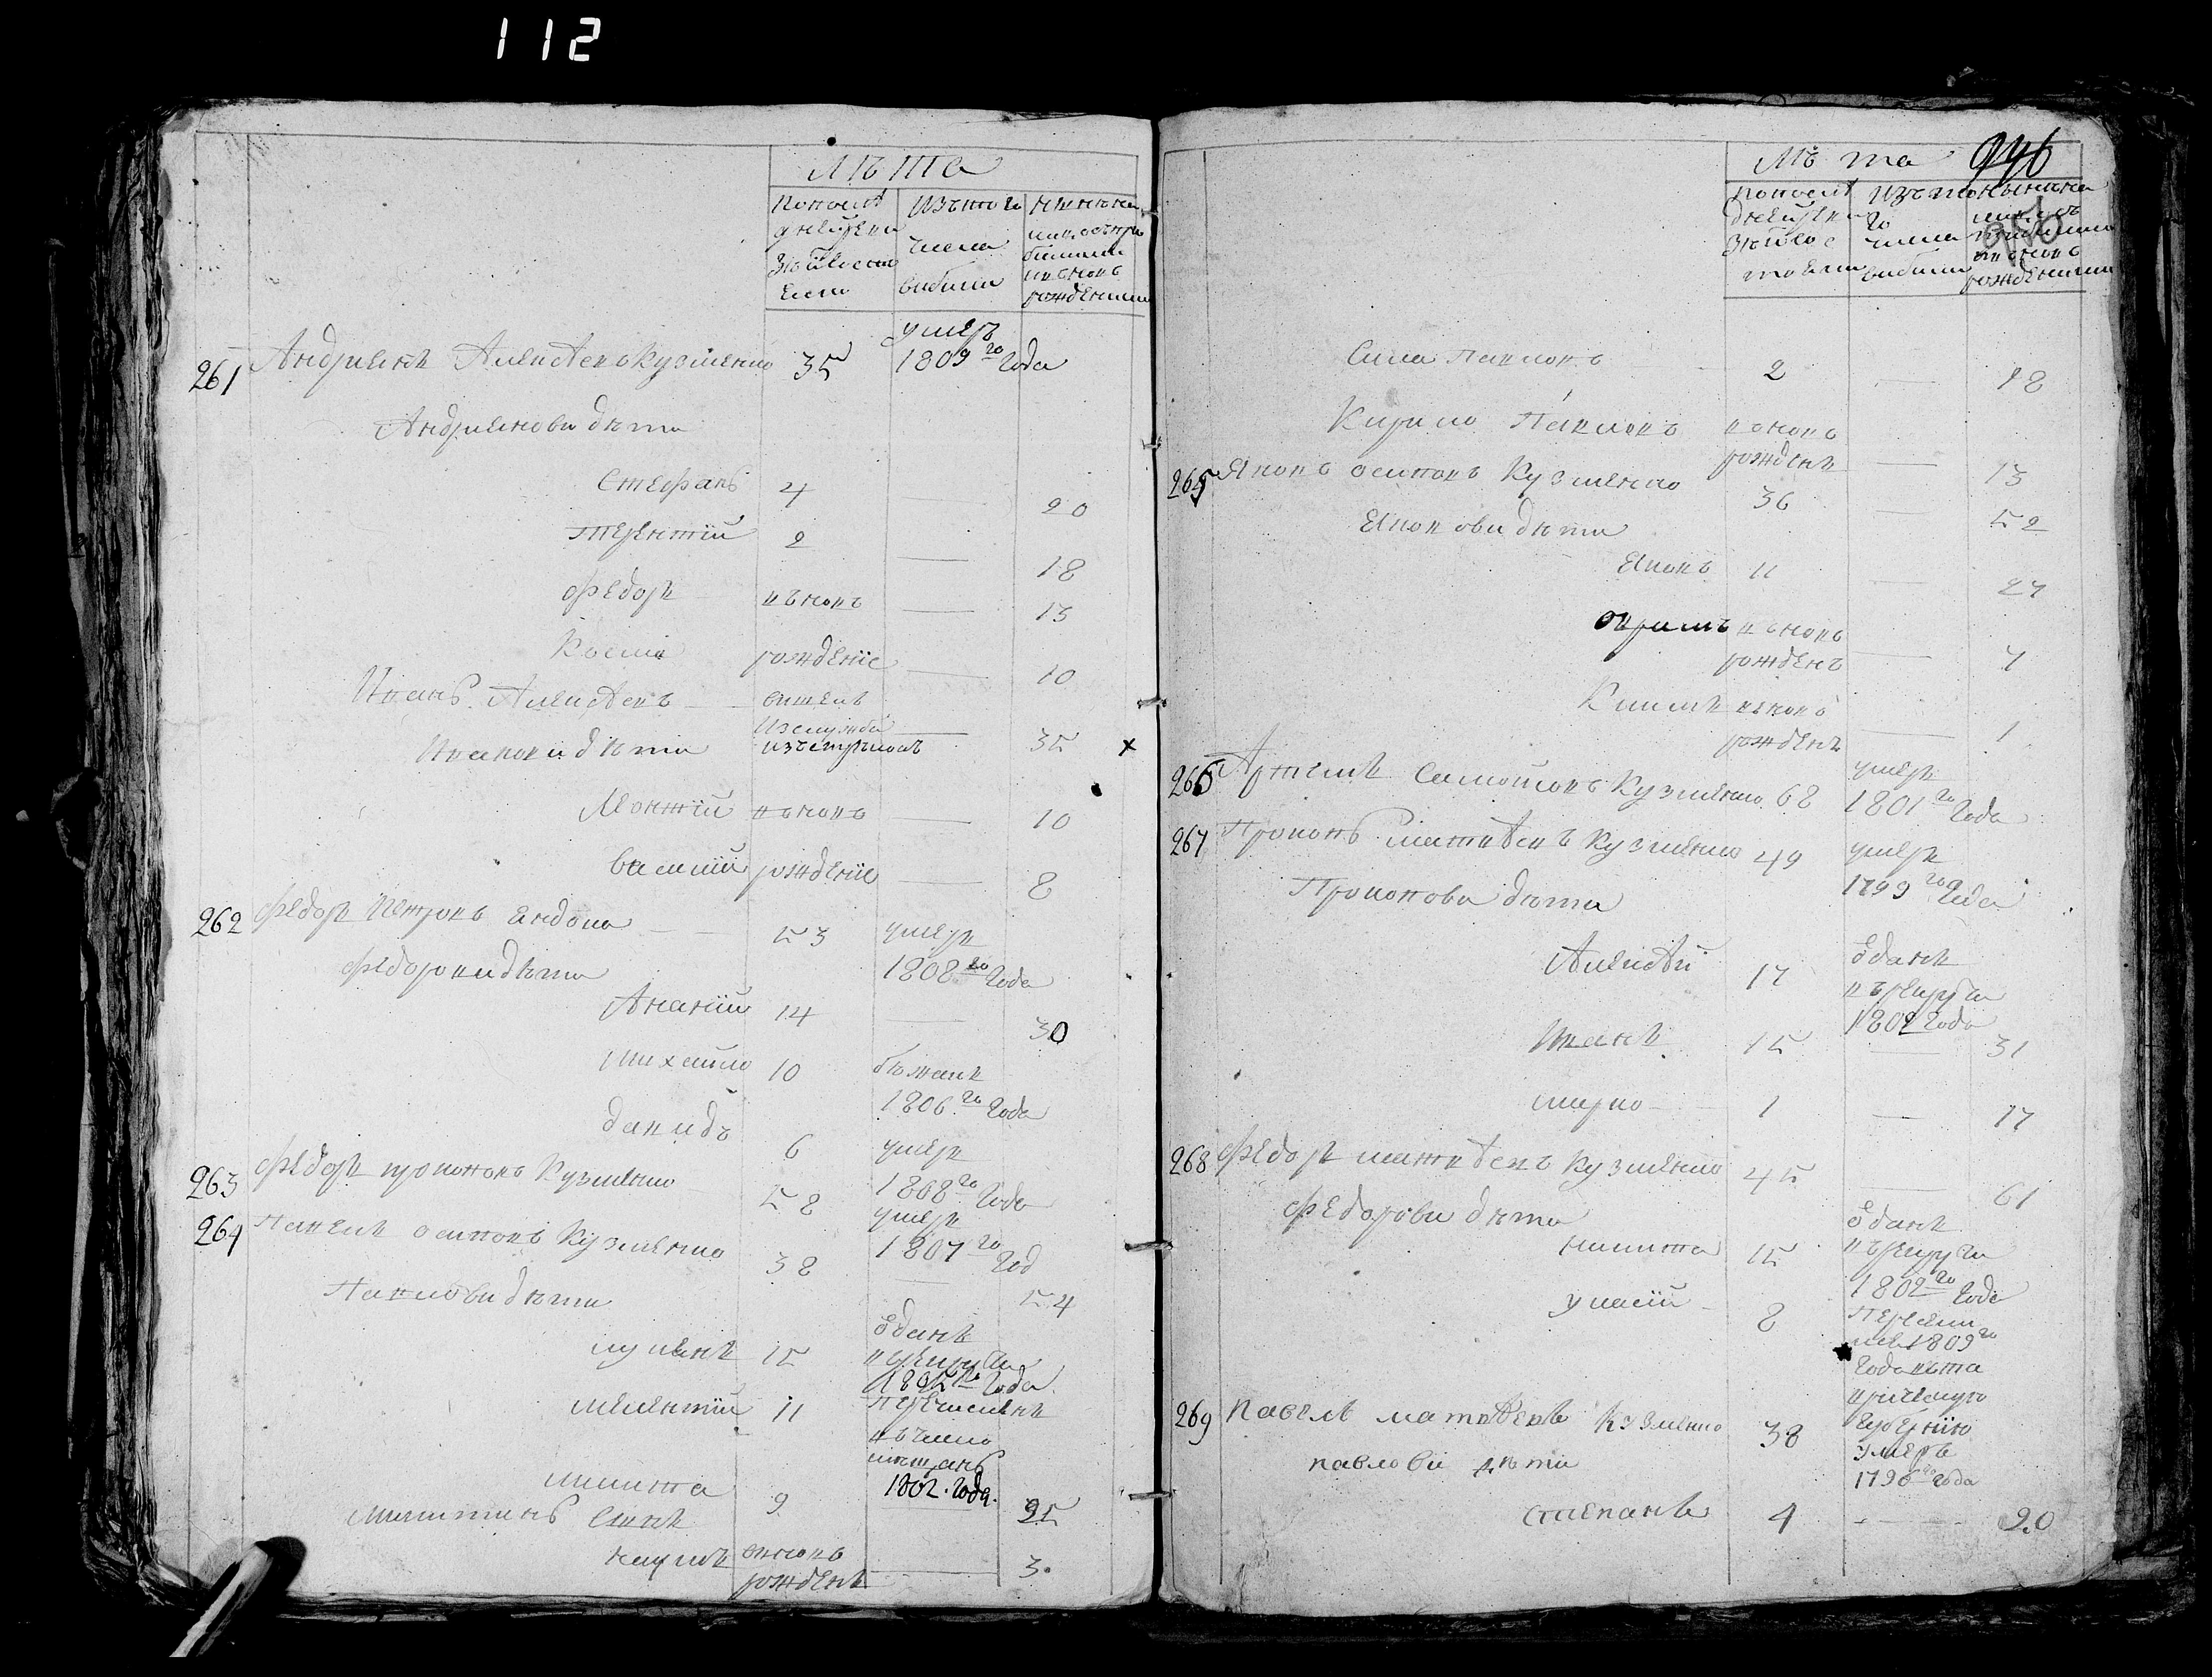 112
Лѣта
Попослѣ
днейреви
зіи было
Изъ того
числа
выбыли
вновь
рожденными
261 Андриянъ Алексѣевъ Кузменко 35 умеръ
1809го Года
Андрияновы дѣти
Стефанъ 4 20
Терентій 2 — 18
Федоръ вновь — 13
Косма рожденіе — 10
Иванъ Алексѣевъ
изслужбы — 35 х
Ивановы дѣти
Леонтій вновь — 10
Василій рожденіе — 8
262 Федоръ Петровъ 53 умеръ
1808го Года
Федоровы дѣти
Ананій 14 — 30
Михайло 10 бѣжалъ
1806го Года
Давидъ 6 умеръ
1808го Года
263 Федоръ Прокоповъ Кузменко 58 умеръ
1807го Год
264 Павелъ Осиповъ Кузменко 38 — 54
Павловы дѣти
Лукьянъ 15 Отданъ
врекруты
Года
Мелентій 11 перечисленъ
въ число
мѣщанъ
1802. Года.
Микита 9 25
Микитинъ Сынъ
Наумъ вновь
рожденъ — 3.
Лѣта 946
Попослѣ
днейреви
зіи
Изъ то
го
числа
выбыли
вновь
рожденными
Сила Павловъ 2 — 18
Кирило Павловъ вновь
рожденъ — 13
265 Яковъ Осиповъ Кузменко 36 — 52
Яковови дѣти
Яковъ 11 — 27
вновь
рожденъ — 7
Климъ вновь
рожденъ — 1
266 Артемъ Самойловъ Кузменко 68 умеръ
1801го Года
267 Прокопъ Матвѣевъ Кузменко 49 умеръ
1799го Года
Прокопови дѣти
Алексѣй 17 Отданъ
врекруты
1802 Года
Иванъ 15 — 31
Марко 1 — 17
268 Федоръ Матвѣевъ Кузменко 45 — 61
Федорови дѣти
Никита 15 Отданъ
врекруты
1802го Года
Уласій 8
1809го
Года вта
врическую
Губернію
269 Павелъ Матвѣевъ Кузменко 38 Умеръ
1796го Года
Павлови Дѣти
Степанъ 4 — 20